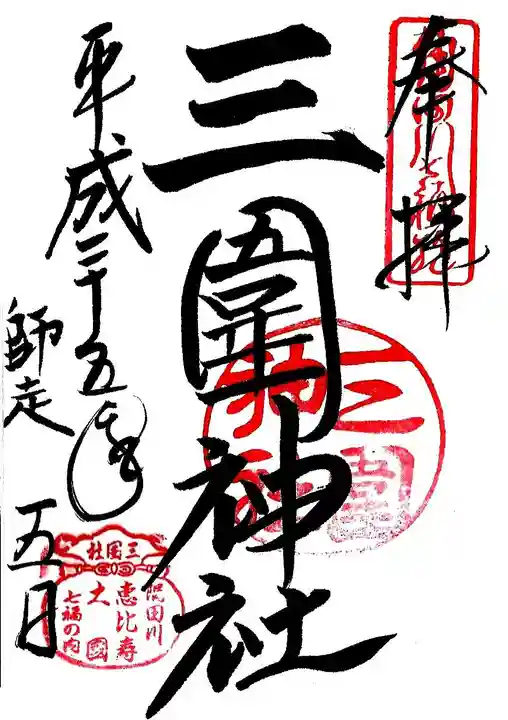 奉拝
三囲神社
平成二十五年
師走
五日
三囲社
隅田川
恵比寿
大國
七福の内